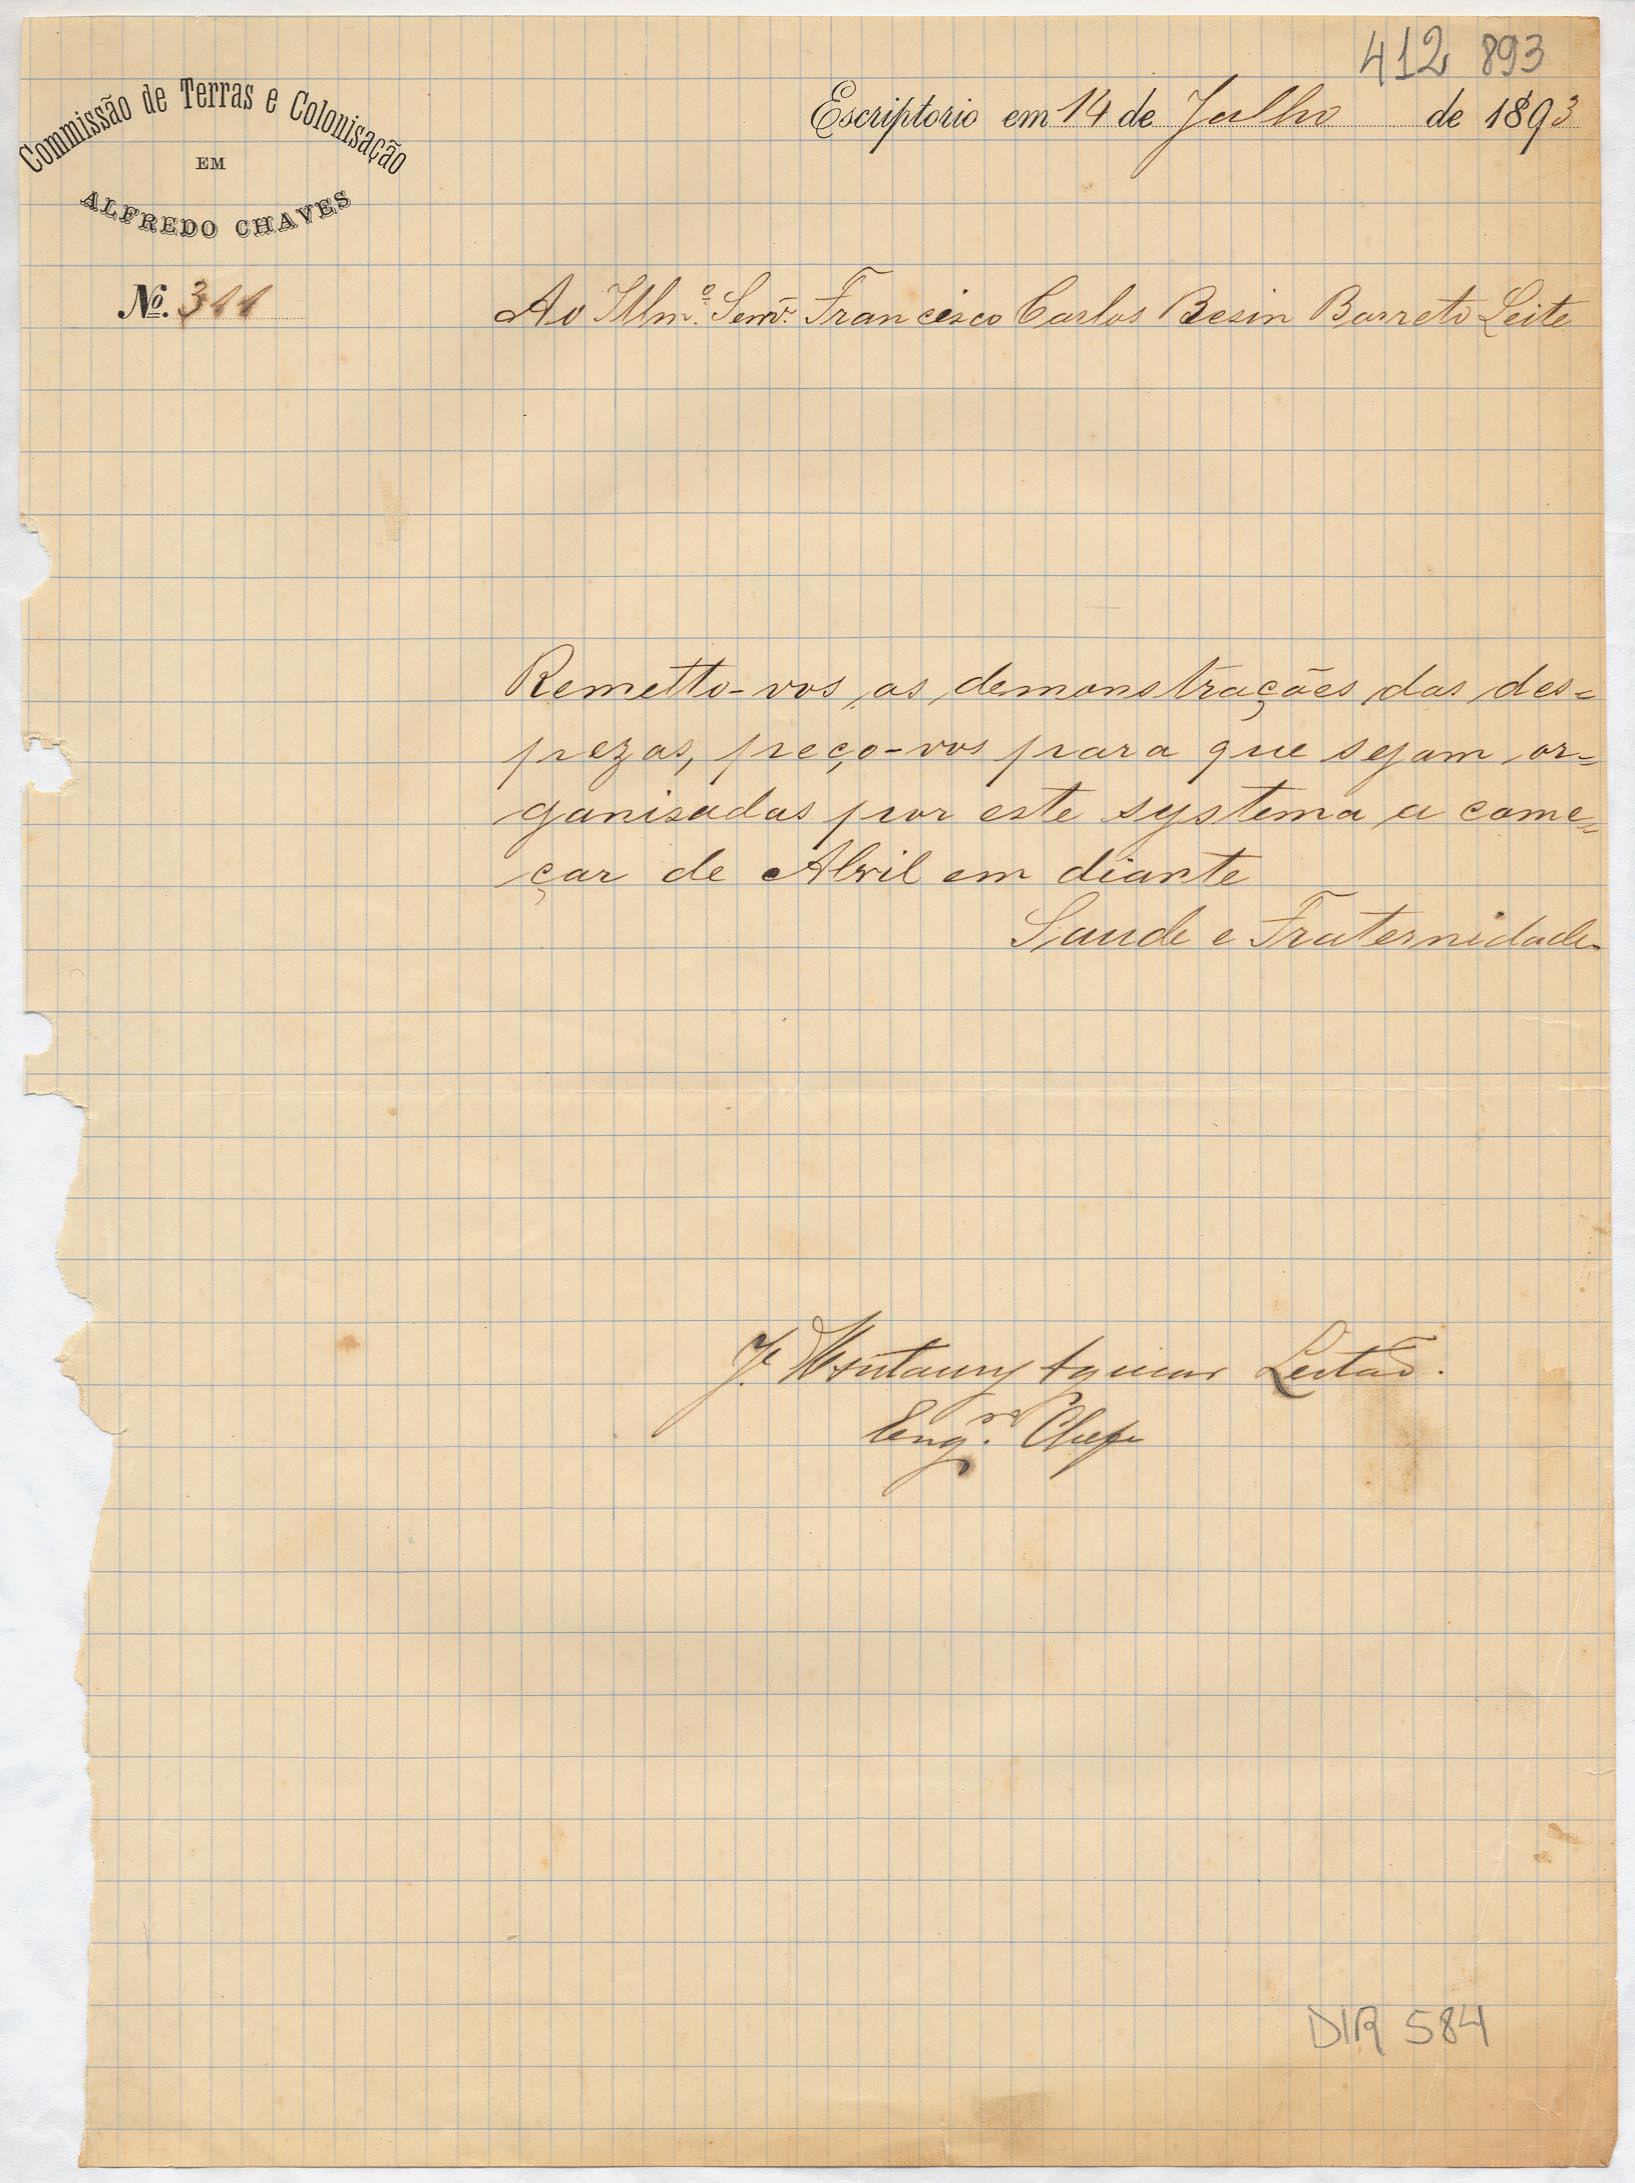 412 893
Commissão de Terras e Colonisação
EM
ALFREDO CHAVES
Escriptorio em 14 de Julho de 1893
No. 311
Ao Illm.o Senr. Francisco Carlos Besin Barreto Leite
Remetto-vos as demonstrações das des=
pezas, peço-vos para que sejam or=
ganisadas por este systema a come=
çar de Abril em diante
Saude e Fraternidade
J. Montaury Aguiar Leitão.
Eng.ro Chefe
DIR 584